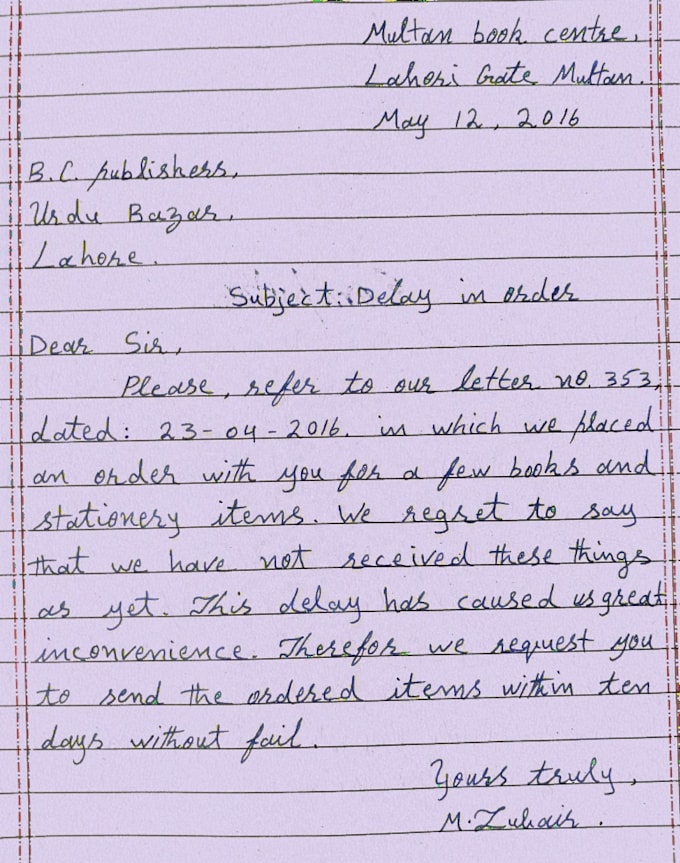 Multan book centre,
Lahori Gate Multan.
May 12, 2016
B.C. publishers,
Urdu Bazar,
Lahore.
Subject: Delay in order
Dear Sir,
Please, refer to our letter no. 353,
dated: 23-04-2016. in which we placed
an order with you for a few books and
stationery items. We regret to say
that we have not received these things
as yet. This delay has caused us great
inconvenience. Therefor we request you
to send the ordered items within ten
days without fail.
Yours truly,
M. Zuhair.